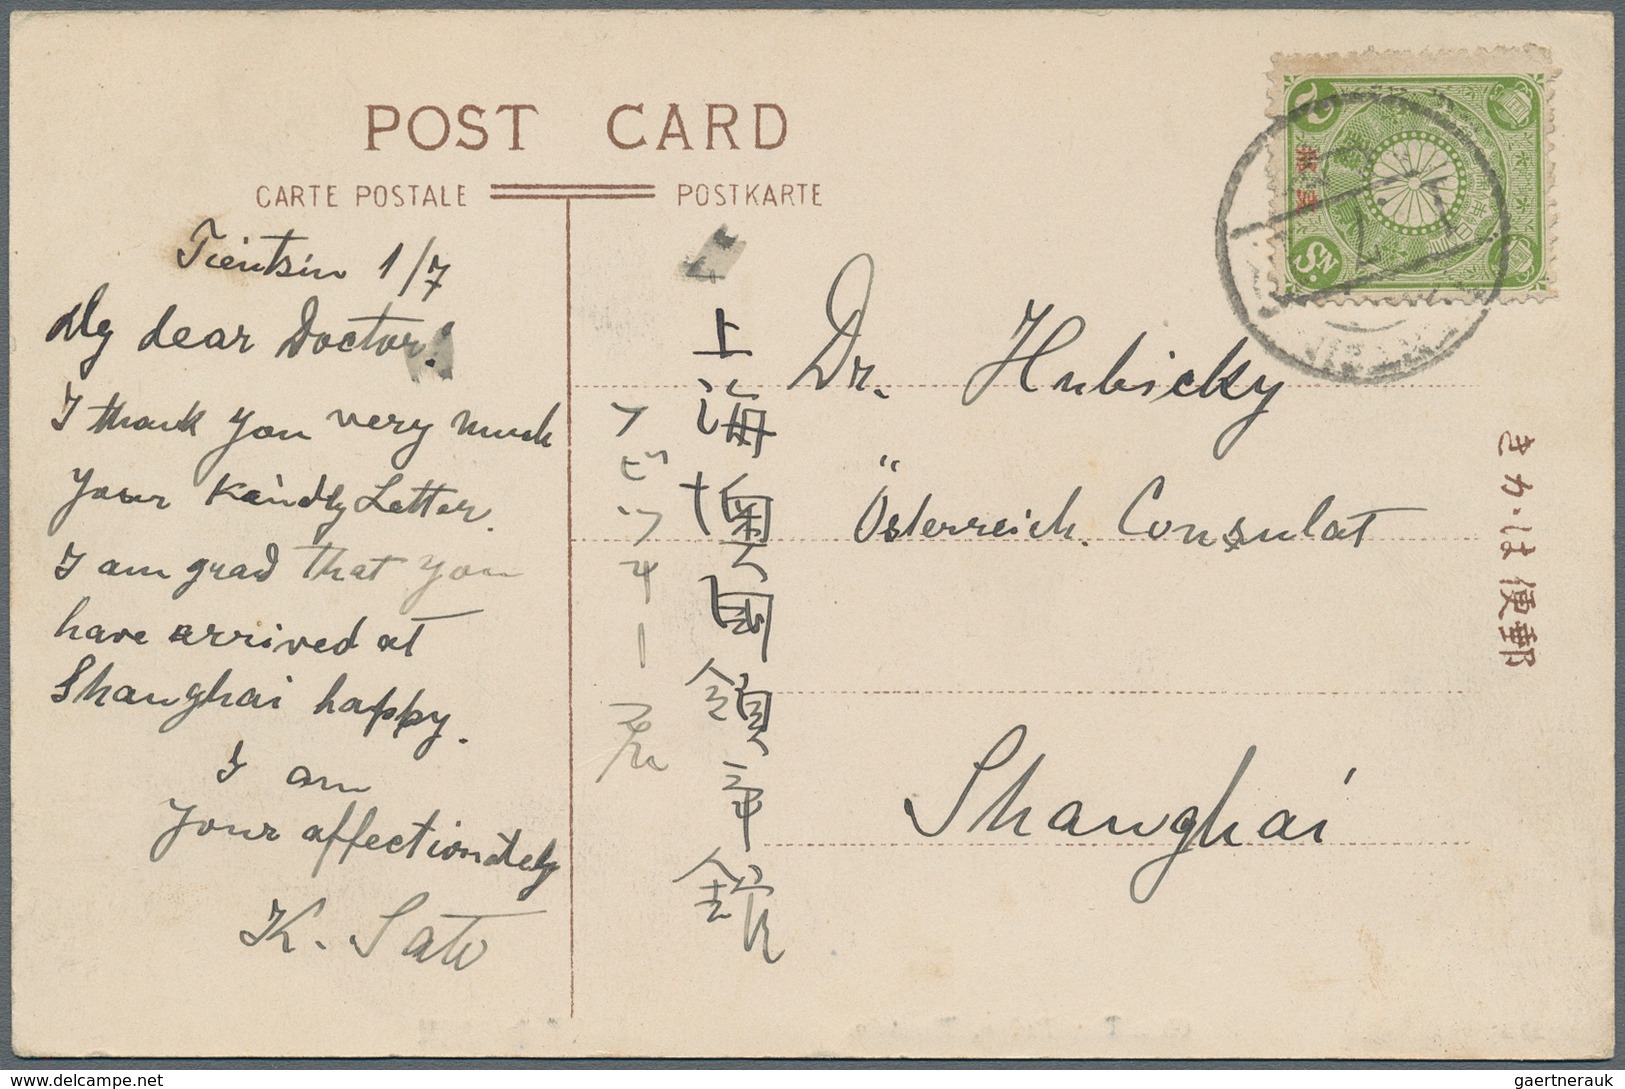 POST CARD
CARTE POSTALE
POSTKARTE
Tientsin 1/7
My dear Doctor!
I thank you very much
your kaindly Letter.
I am grad that you
have arrived at
Shanghai happy.
I am
Your affectionately
K. Sato
上海墺國領亊舘
フビツキー君
Dr. Hubicky
Österreich. Consulat
Shanghai
支那
2
Sn.
きかは便郵
gaertnerauk